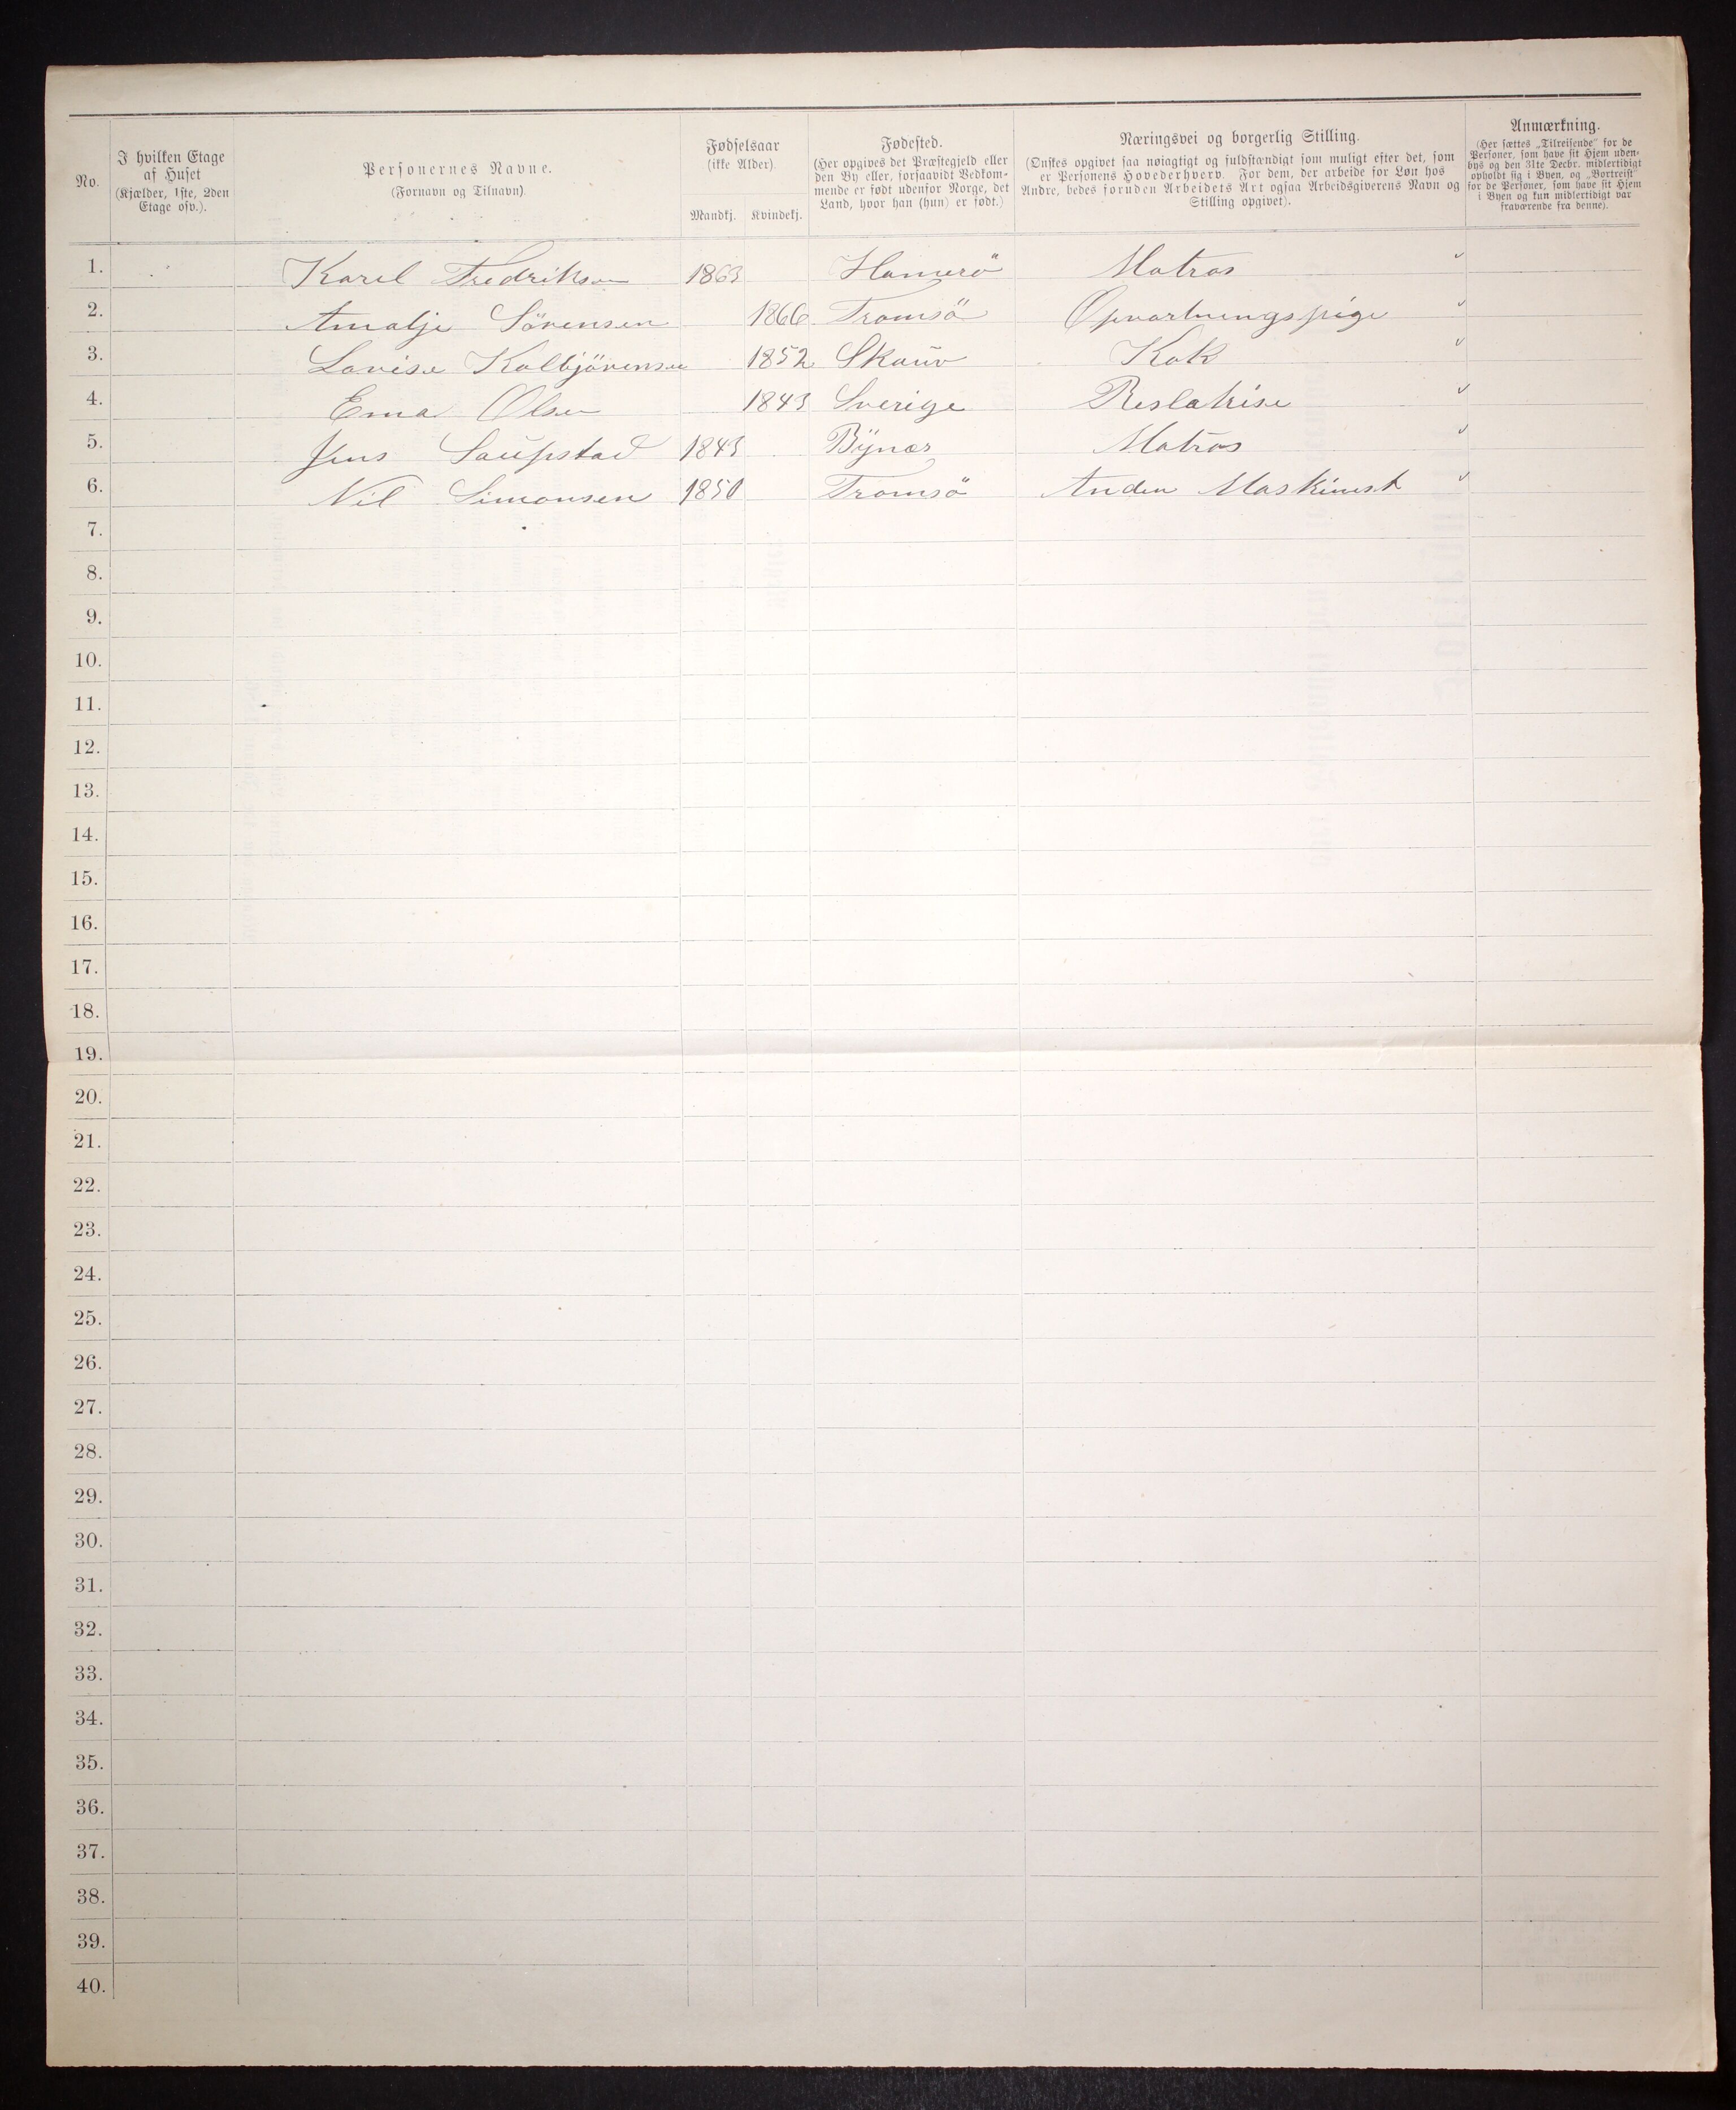 No.
I hvilken Etage af Huset (Kjælder, 1ste, 2den Etage osv.).
Personernes Navne. (Fornavn og Tilnavn).
Fødselsaar (ikke Alder). Mandkj. Kvindekj.
Fødested. (Her opgives det Præstegjeld eller den By eller, forsaavidt Vedkommende er født udenfor Norge, det Land, hvor han (hun) er født.)
Næringsvei og borgerlig Stilling. (Ønskes opgivet saa nøiagtigt og fuldstændigt som muligt efter det, som er Personens Hovederhverv. For dem, der arbeide for Løn hos Andre, bedes foruden Arbeidets Art ogsaa Arbeidsgiverens Navn og Stilling opgivet).
Anmærkning. (Her sættes „Tilreisende" for de Personer, som have sit Hjem udenbys og den 31te Decbr. midlertidigt opholdt sig i Byen, og „Bortreist" for de Personer, som have sit Hjem i Byen og kun midlertidigt var fraværende fra denne).
1. Karel Fredriksen 1863 Hamerö Matros
2. Amalje Sörensen 1866 Tromsö Opvartningspige
3. Lovise Kolbjörensen 1852 Skauv Kok
4. Ema Olsen 1843 Sverige
5. Jens Saupstad 1843 Bynæs Matros
6. Nil Simonsen 1850 Tromsö Anden Maskinist
7.
8.
9.
10.
11.
12.
13.
14.
15.
16.
17.
18.
19.
20.
21.
22.
23.
24.
25.
26.
27.
28.
29.
30.
31.
32.
33.
34.
35.
36.
37.
38.
39.
40.